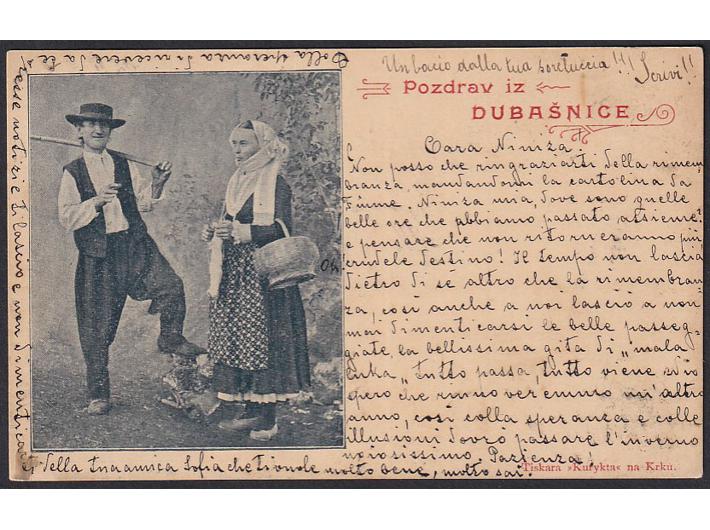 Un bacio dalla tua soretuccia!!! Scrivi!!
Pozdrav iz
DUBAŠNICE
Cara Niniza.
Non posso che ringraziarti della rimem
branza, mandandomi la cartolina da
Fiume. Niniza mia, dove sono quelle
belle ore che abbiamo passato assieme
e pensare che non ritorneranno più
crudele destino! Il tempo non lascia
dietro di sè altro che la rimembran
za, così anche a noi lasciò a non
mai dimenticarsi le belle passeg
giate, la bellissima gita di „mala
luka„ tutto passa, tutto viene ed io
spero che verremo un'altro
anno, così colla speranza e colle
illusioni dovrò passare l'inverno
noiosissimo. Pazienza!
Colla speranza di ricevere da te
notizie ti lascio e non dimenticarti
della tua amica Sofia che ti vuole molto bene, molto sai!
Tiskara »Kurykta« na Krku.